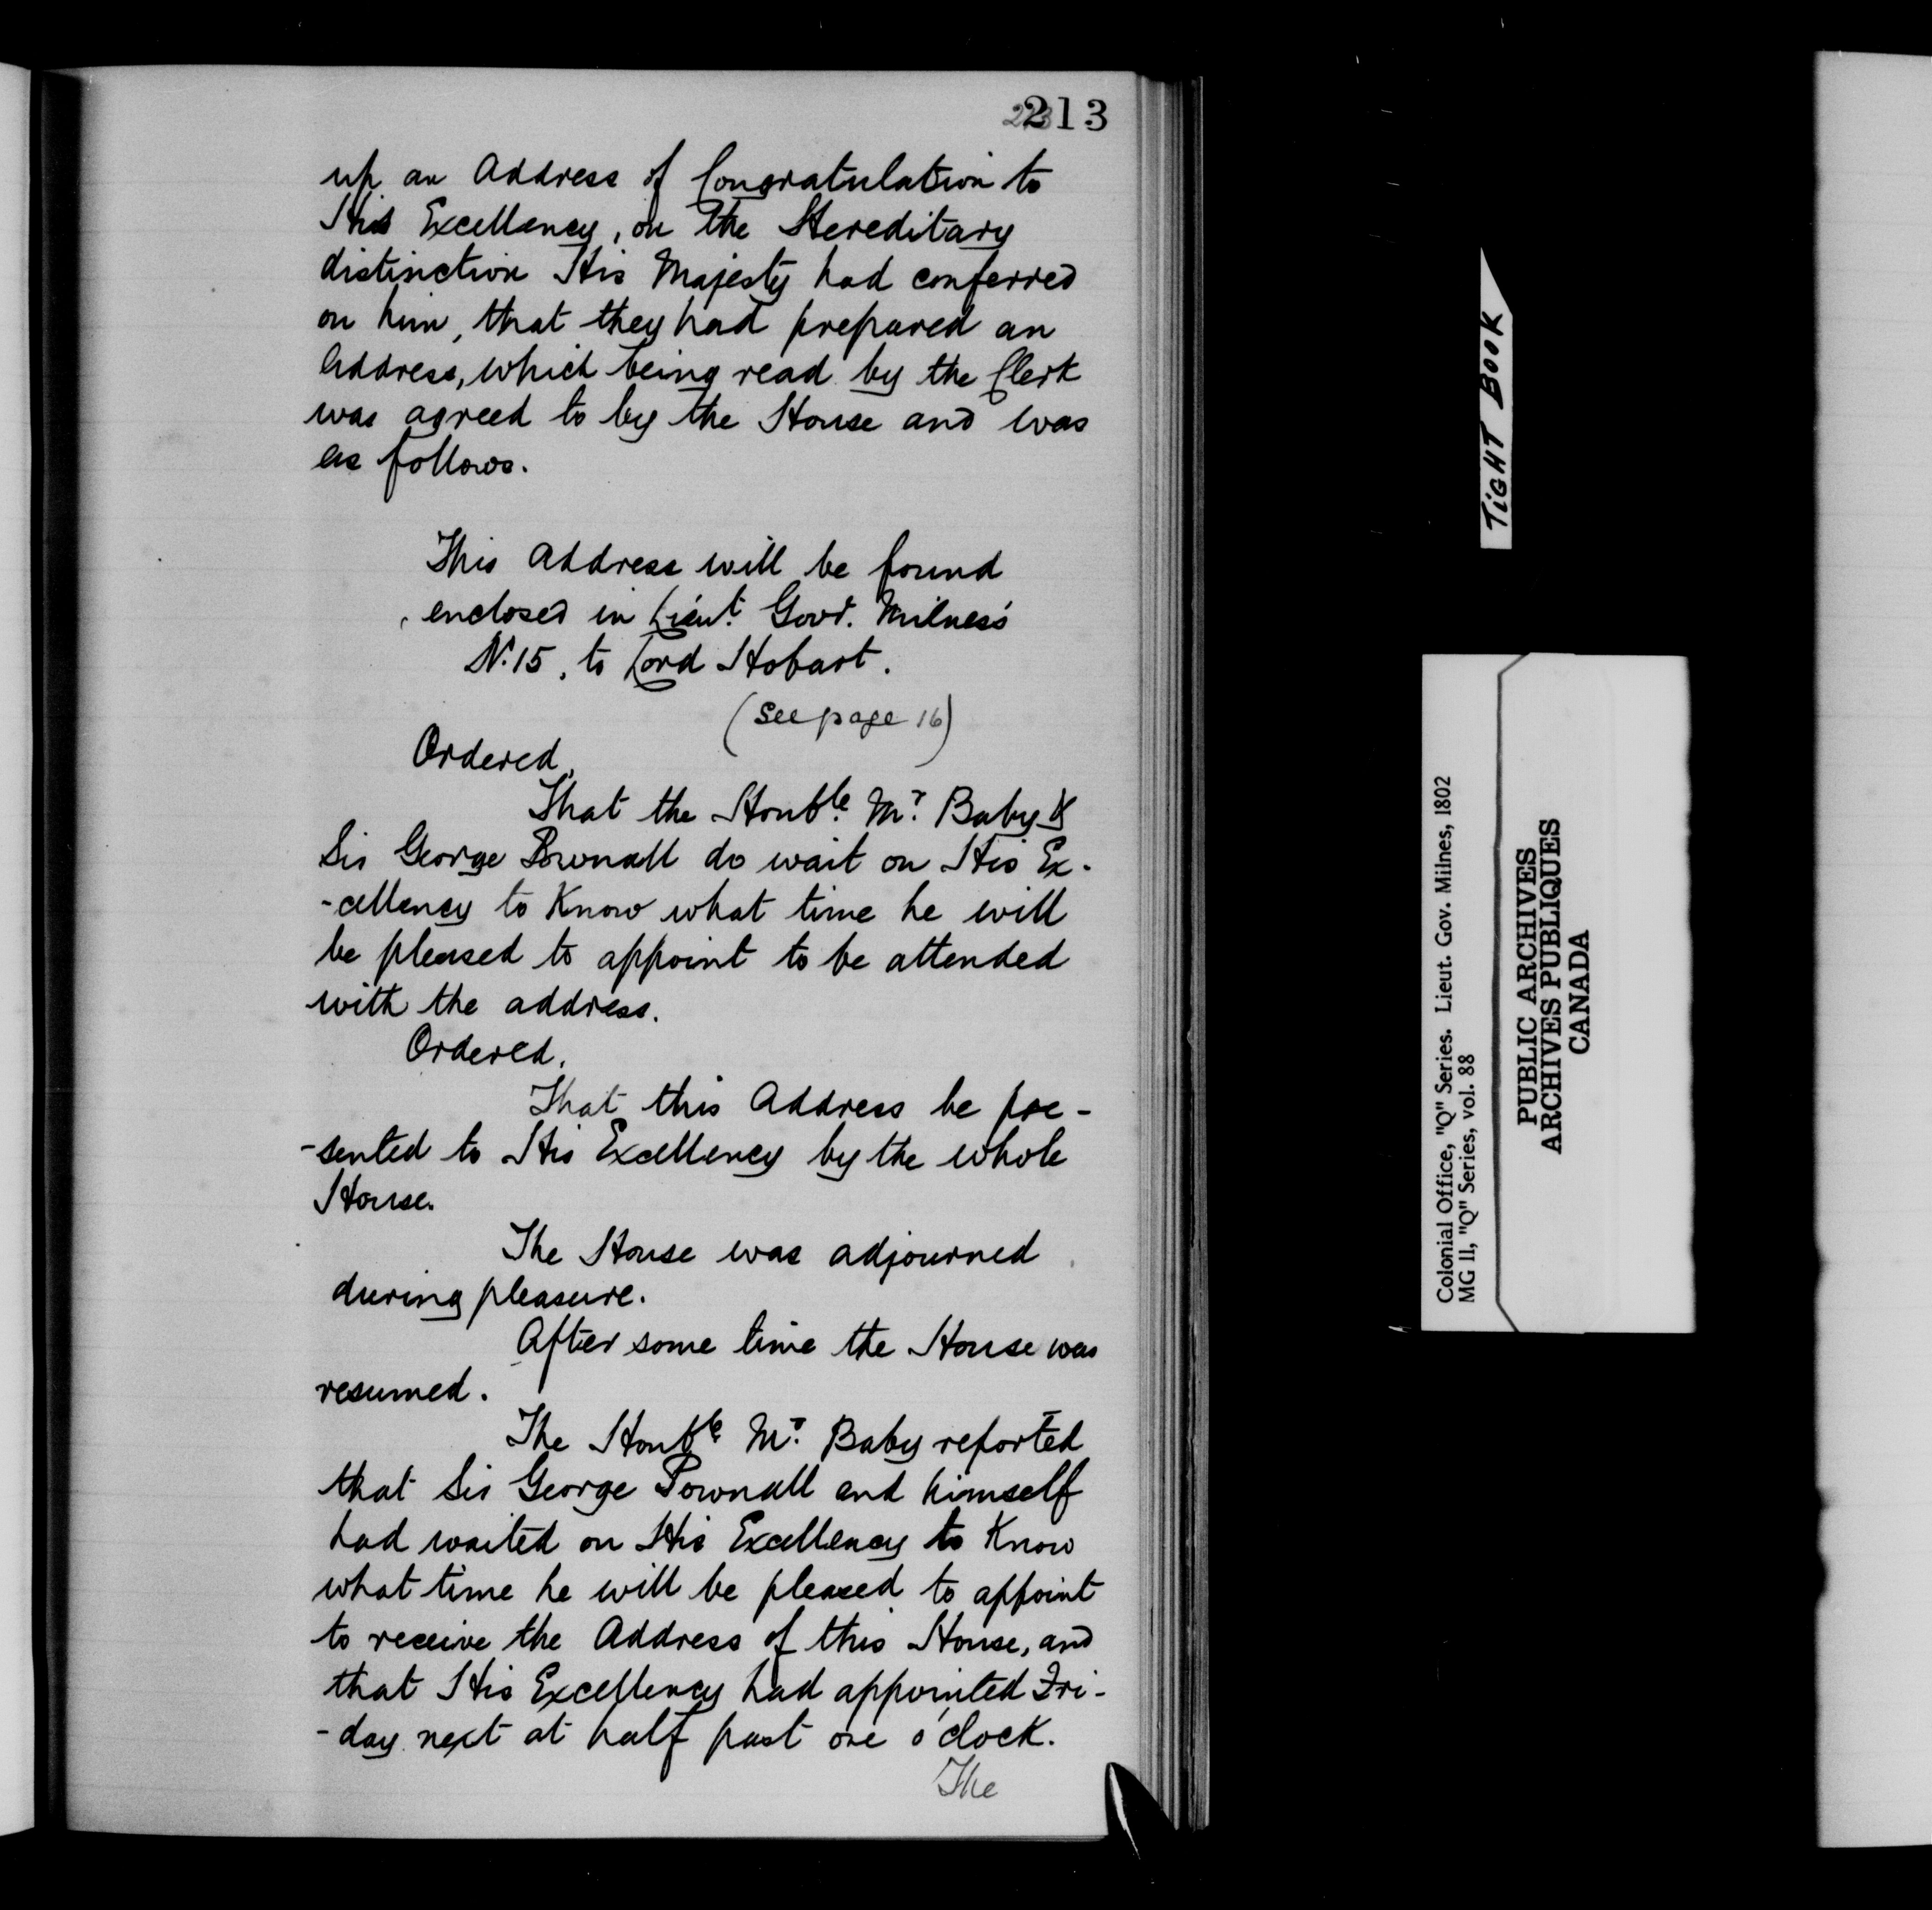 213
up an Address of Congratulation to
His Excellency, on the Hereditary
distinction His Majesty had conferred
on him, that they had prepared an
Address, which being read by the Clerk
was agreed to by the House and was
as follows.
This Address will be found
enclosed in Lieut. Govr. Milnes's
N. 15, to Lord Hobart.
(See page 16)
Ordered,
That the Honble. Mr. Baby &
Sir George Pownall do wait on His Ex-
-cellency to Know what time he will
be pleased to appoint to be attended
with the address.
Ordered,
That this Address be pre-
-sented to His Excellency by the whole
House.
The House was adjourned
during pleasure.
After some time the House was
resumed.
The Honble. Mr. Baby reported
that Sir George Pownall and himself
had waited on His Excellency to Know
what time he will be pleased to appoint
to receive the Address of this House, and
that His Excellency had appointed Fri-
-day next at half past one o'clock.
The
TIGHT BOOK
Colonial Office, "Q" Series. Lieut. Gov. Milnes, 1802
MG 11, "Q" Series, vol. 88
PUBLIC ARCHIVES
ARCHIVES PUBLIQUES
CANADA